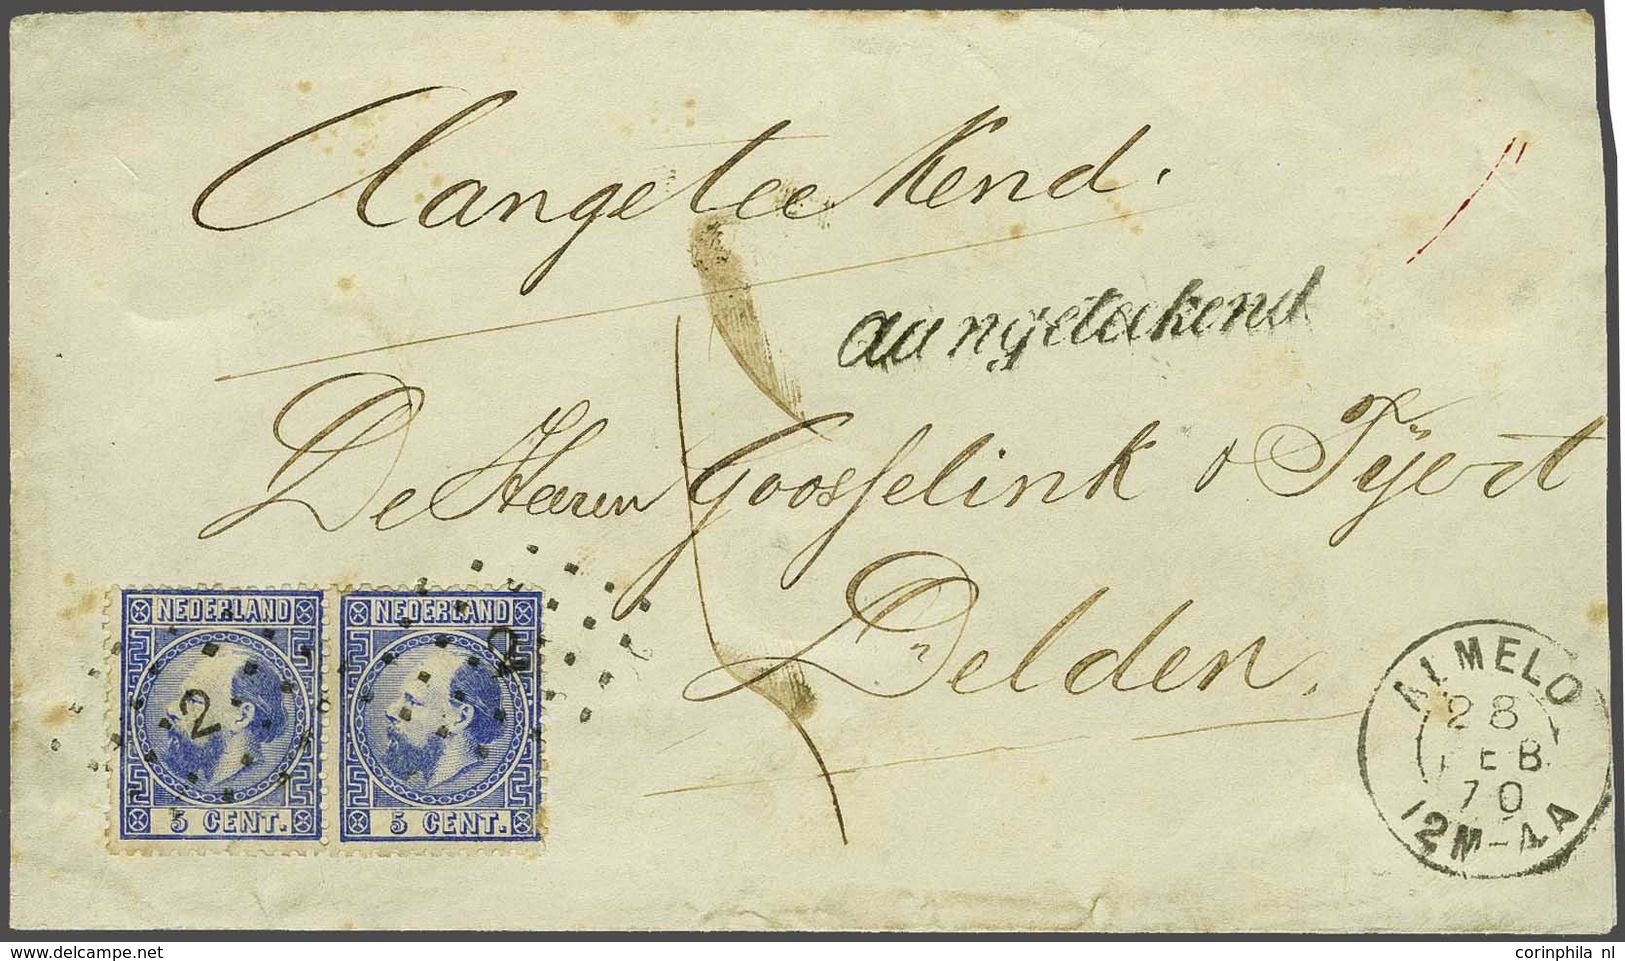 Aangeteekend.
aangeteekend
De Heeren Goosselink &
Delden.
NEDERLAND
2
5 CENT.
NEDERLAND
2
5 CENT.
ALMELO
28
FEB
70
12M-4A
www.delcampe.net
corinphila nl